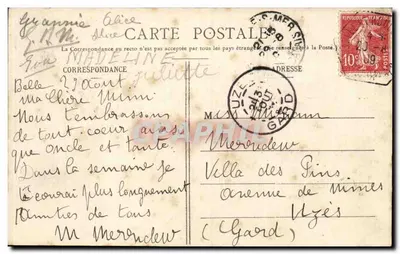 Grannie Alice
CARTE POSTALE
La Correspondance au recto n'est pas acceptée par tous les pays étrangers
MADELINE
Juliette
CORRESPONDANCE
ADRESSE
Ma chère Mimi
Nous t'embrassons
de tout coeur ainsi
que oncle et tante.
Dans la semaine je
t'écrirai plus longuement
Amitiés de tous
M Merendew
UZES
GARD
10
Merendew
Villa des Pins
avenue de Nimes
Uzès
(Gard)